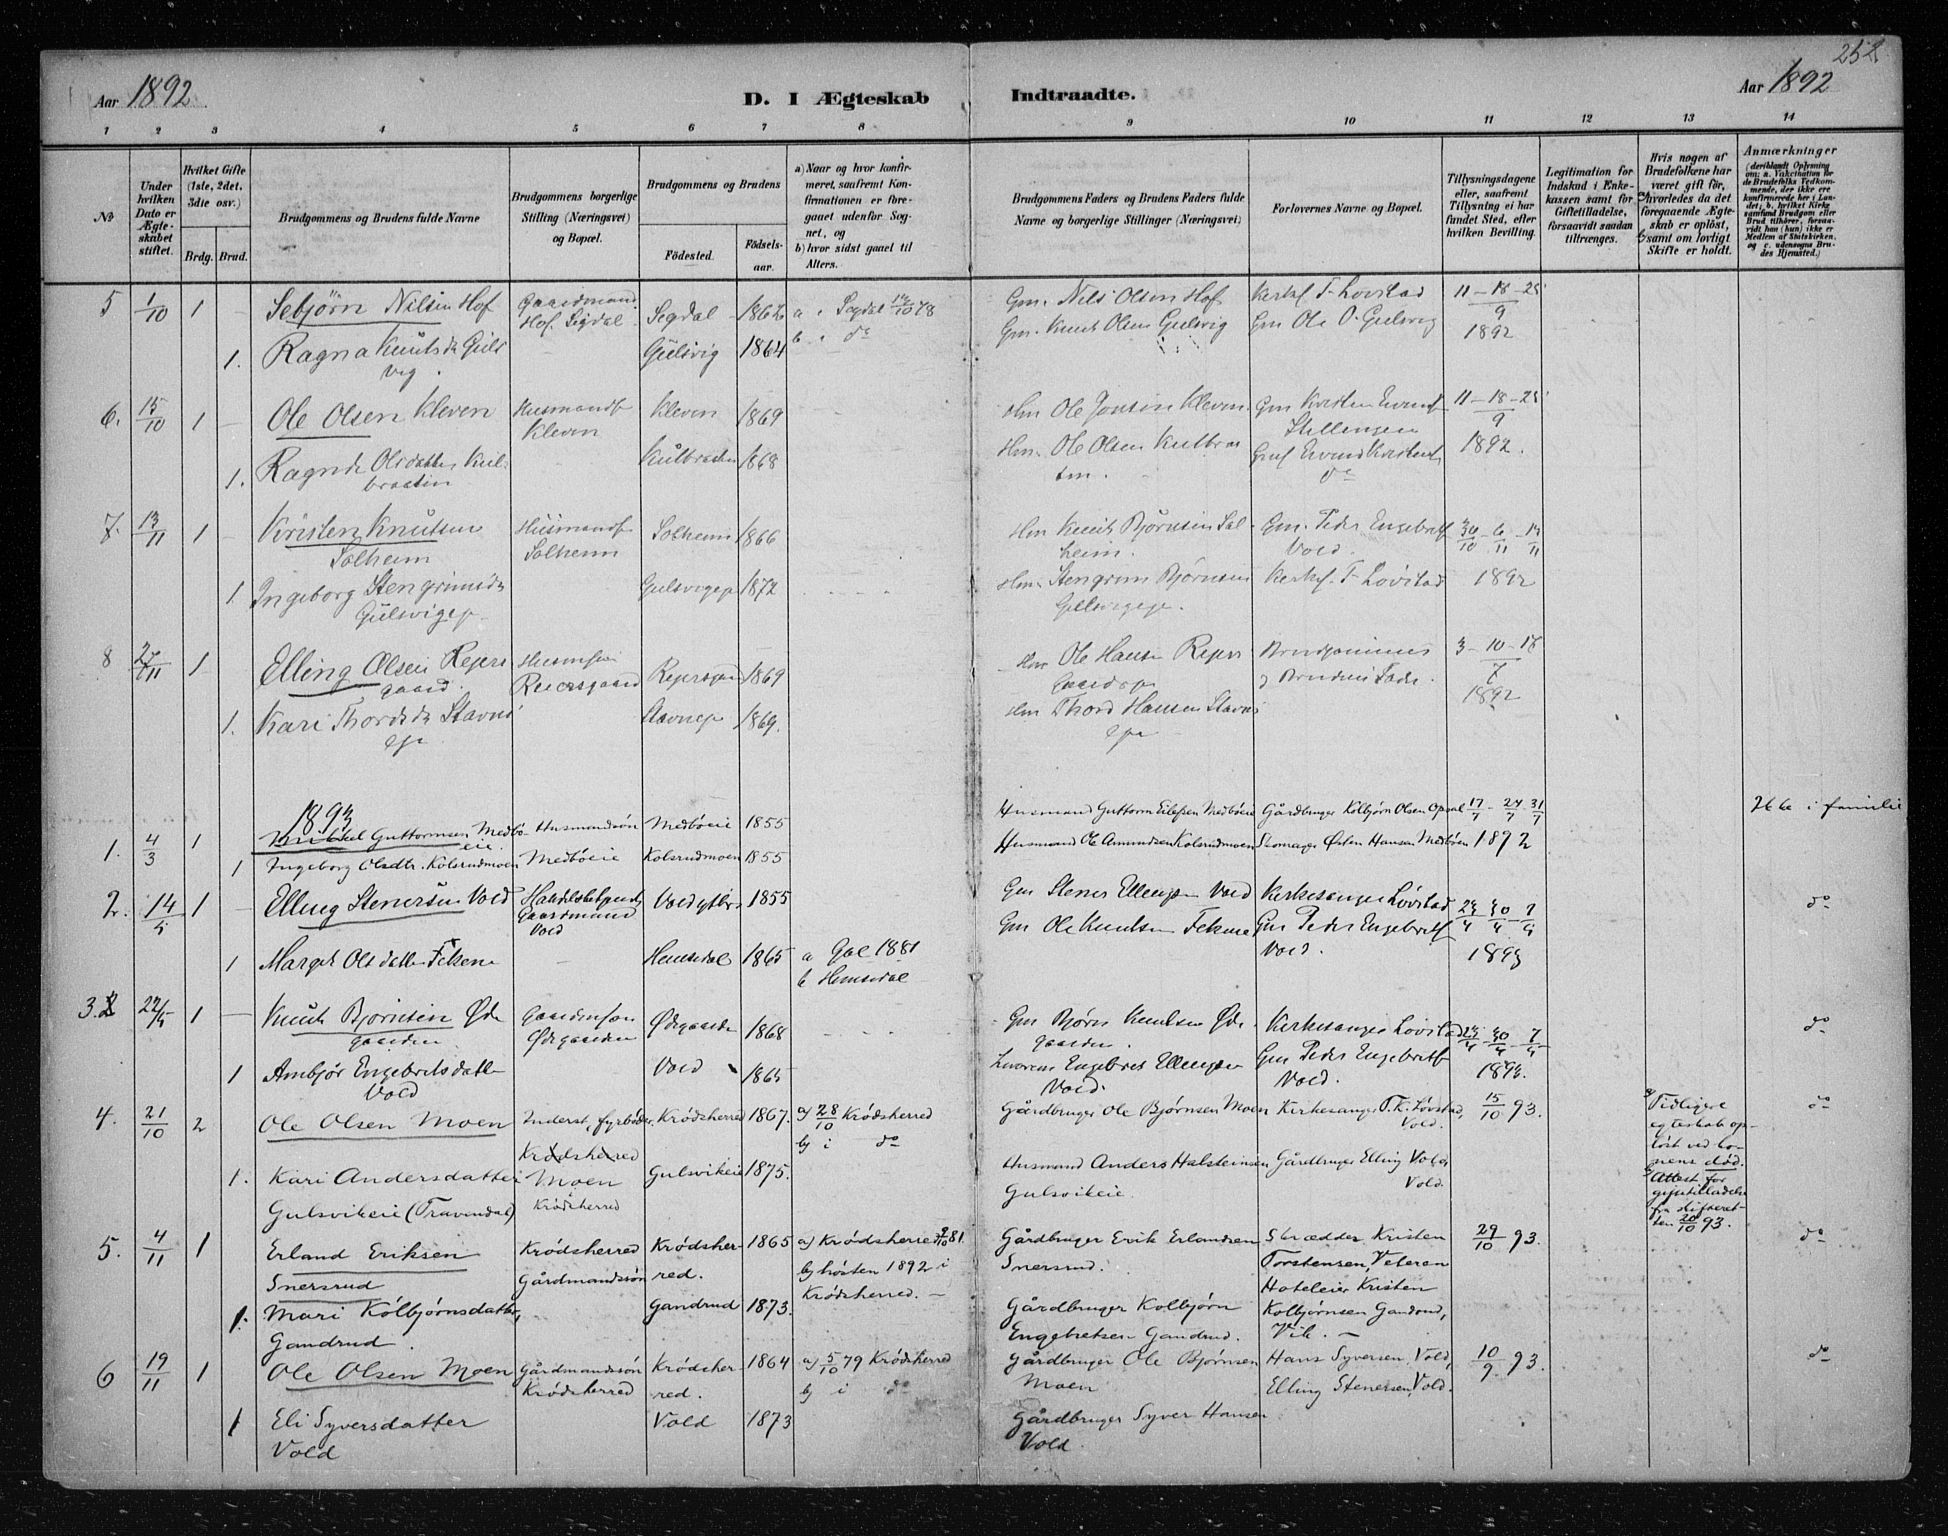 252
Aar 1892
D. I Ægteskab Indtraadte.
Aar 1892
1 2 3 4 5 6 7 8 9 10 11 12 13 14
№
Under hvilken Dato er Ægteskabet stiftet.
Hvilket Gifte (1ste, 2det, 3die osv.)
Brdg. Brud.
Brudgommens og Brudens fulde Navne
Brudgommens borgerlige Stilling (Næringsvei) og Bopæl.
Brudgommens og Brudens
Fødested.
Fødselsaar.
a) Naar og hvor konfirmeret, saafremt Konfirmationen er foregaaet udenfor Sognet, og
b) hvor sidst gaaet til Alters.
Brudgommens Faders og Brudens Faders fulde Navne og borgerlige Stillinger (Næringsvei)
Forlovernes Navne og Bopæl.
Tillysningsdagene eller, saafremt Tillysning ei har fundet Sted, efter hvilken Bevilling.
Legitimation for Indskud i Enkekassen samt for Giftetilladelse, forsaavidt saadan tiltrænges.
Hvis nogen af Brudefolkene har været gift før, hvorledes da det foregaaende Ægteskab er opløst, samt om lovligt Skifte er holdt.
Anmærkninger
(deriblandt Oplysning om: a. Vakcination for de Brudefolks Vedkommende, der ikke ere konfirmerede her i Landet; b. hvilket Kirkesamfund Brudgom eller Brud tilhører, forsaavidt han (hun) ikke er Medlem af Statskirken, og c. udensogns Brudes Hjemsted.)
5 1/10 1 – Sebjørn Nilsen Hof Gaardmand Hof. Sigdal Segdal 1862 a. Segdal 13/10 78 Gm. Nils Olsen Hof Kirkes. T. Lovstad 11 – 18 – 25/9
1. Ragna Knutsdr Gulsvig. – Gulsvig 1864 b. do Gm. Knut Olsen Gulsvig Gm Ole O. Gulsvig 1892
6. 15/10 1 – Ole Olsen Kleven Husmandss Kleven Kleven 1869 Hm Ole Jonsen Kleven Gm Kristen Evends Stillengen 11 – 18 – 25/9
1. Ragnd. Olsdatter Kulbraaten Kulbraaten 1868 Hm. Ole Olsen Kulbraaten. Evend Kristens do 1892.
7. 13/11 1 – Kristen Knutsen Solheim Husmandss Solheim Solheim 1866 Hm Knut Bjørnsen Solheim. Gm. Peder Engebrets Vold. 30/10 – 6/11 – 13/11
1. Ingeborg Stengrimsdr Gulsvigeje Gulsvigeje 1872 Hm. Stengrim Bjørnsen Gulsvigeje. Kirkes. T. Lovstad 1892
8 27/11 1 – Elling Olsen Rejersgaard. Reiersgaard Rejersgaard 1869 Hm Ole Hansen Rejersgaardeje Brudgommens og Brudens Fader. 3 – 10 – 18/7
1. Kari Thordsdr Stavnseje Stavneje 1869. Hm Thord Hansen Stavnseje 1892
1893
1. 4/3 1 Mikkel Guttormsen Medbøeie. Husmandssøn Medbøeie 1855 Husmand Guttorm Eilefsen Medbøeie Gårdbruger Kolbjørn Olsen Opsal 17/7 – 24/7 – 31/7 Ikke i familie
1 Ingeborg Olsdtr. Kolsrudmoen Medbøeie Kolsrudmoen 1855 Husmand Ole Amundsen Kolsrudmoen Skomager Østen Hansen Medbøen 1892
2. 14/5 1 – Elling Stenersen Vold Gaardmand Vold 1855 Gm Stener Ellingsen Vold Kirkesanger Lovstad 23/4 – 30/4 – 7/4 do
1 Marget Olsdatter Fekene – Hemsedal 1865 a Gol 1881 b Hemsedal Gm Ole Knutsen Fekene Gm Peder Engebrets Vold. 1893
3. 22/5 1 – Knut Bjørnsen Ødegaarden Gaardmsøn Ødegaarden Ødegaarden 1868 Gm Bjørn Knutsen Ødegaarden. Kirkesanger Lovstad 23/4 – 30/4 – 7/4 do
1 Ambjør Engebretsdatter Vold Vold 1865 Engebret Ellingsen Vold. Gm Peder Engebrets Vold. 1893.
4. 21/10 2 Ole Olsen Moen Inderst, fyrbøder, Krødsherred Krødsherred 1867. a) 28/10 Krødsherred b) i do Gårdbruger Ole Bjørnsen Moen Kirkesanger T. K. Lovstad, Vold. 15/10 93. a) Tidligere egteskab opløst ved konens død. b) Attest for giftetilladelse fra skifteretten 20/10 93. do
1. Kari Andersdatter Gulsvikeie (Travendal) Moen Krødsherred Gulsvikeie 1875. Husmand Anders Halsteinsen Gulsvikeie. Gårdbruger Elling Vold, Vold.
5. 4/11 1 Erland Eriksen Snersrud Krødsherred Gårdmandssøn Krødsherred. 1865 a) Krødsherred 9/10 81. b) høsten 1892 i Krødsherred. – Gårdbruger Erik Erlandsen Snersrud. Skrædder Kristen Torstensen, Veteran 29/10 93. do
1. Mari Kolbjørnsdatter, Gandrud. Gandrud 1873. Gårdbruger Kolbjørn Engebretsen Gandrud. Hoteleier Kristen Kolbjørnsen Gandrud, Vik. –
6 19/11 1 Ole Olsen Moen Gårdmandssøn Krødsherred Krødsherred. 1864 a) 5/10 79 Krødsherred b) i do Gårdbruger Ole Bjørnsen Moen Hans Syversen, Vold, Elling Stenersen, Vold. 10/9. 93. do
1 Eli Syversdatter Vold Vold 1873 Gårdbruger Syver Hansen Vold.